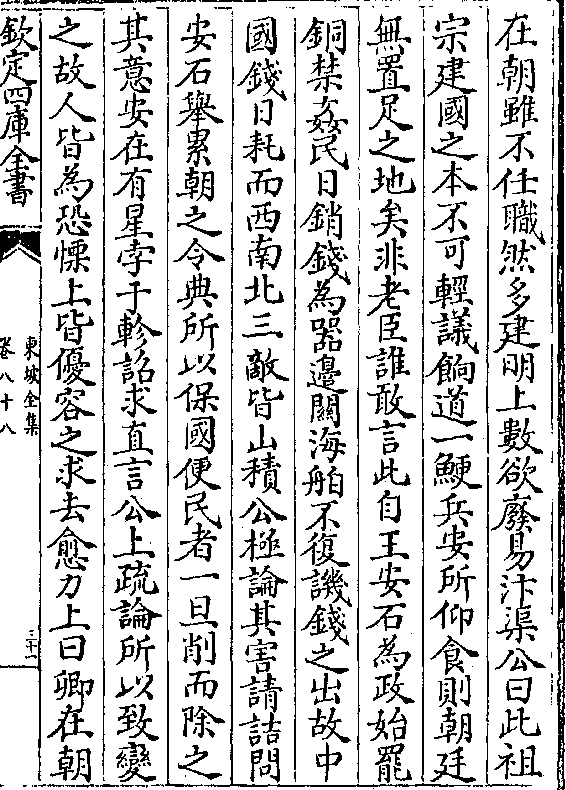 在朝雖不任職然多建明上數欲廢易汴渠公曰此祖
宗建國之本不可輕議餉道一鯁兵安所仰食則朝廷
無置足之地矣非老臣誰敢言此自王安石為政始罷
銅禁姦民日銷錢為器邊關海舶不復譏錢之出故中
國錢日耗而西南北三敵皆山積公極論其害請詰問
安石舉累朝之令典所以保國便民者一旦削而除之
其意安在有星孛于軫詔求直言公上疏論所以致變
之故人皆為恐慄上皆優容之求去愈力上曰卿在朝
欽定四庫全書
東坡全集
卷八十八
三十一